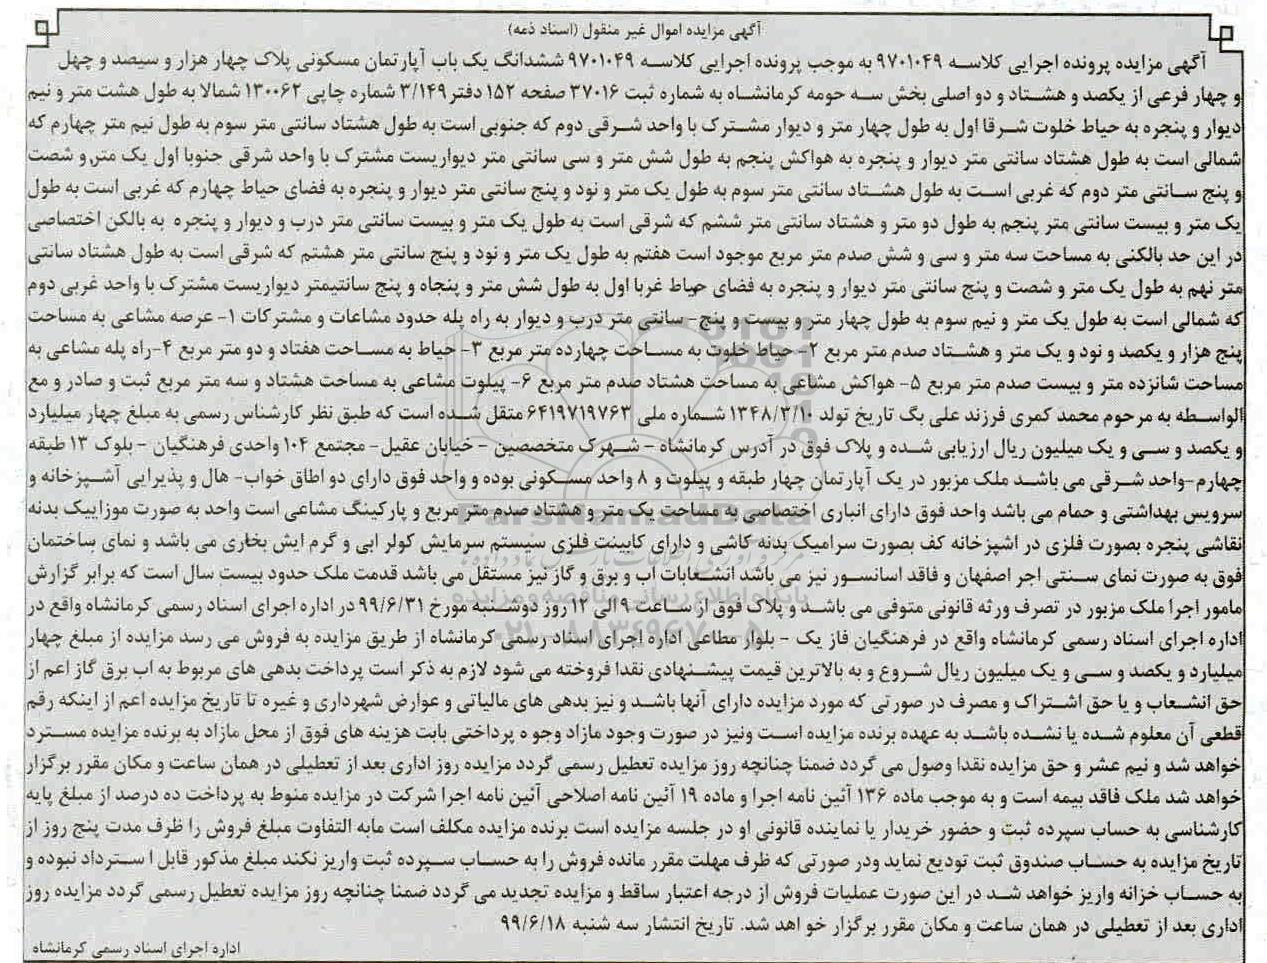 آگهی مزایده اموال غیر منقول (اسناد ذمه)
آگهی مزایده پرونده اجرایی کلاسه ۹۷۰۱۰۴۹ به موجب پرونده اجرایی کلاسه ۹۷۰۱۰۴۹ ششدانگ یک باب آپارتمان مسکونی پلاک چهار هزار و سیصد و چهل
و چهار فرعی از یکصد و هشتاد و دو اصلی بخش سه حومه کرمانشاه به شماره ثبت ۳۷۰۱۶ صفحه ۱۵۲ دفتر ۳/۱۴۹ شماره چاپی ۱۳۰۰۶۲ شمالا به طول هشت متر و نیم
دیوار و پنجره به حیاط خلوت شرقا اول به طول چهار متر و دیوار مشترک با واحد شرقی دوم که جنوبی است به طول هشتاد سانتی متر سوم به طول نیم متر چهارم که
شمالی است به طول هشتاد سانتی متر دیوار و پنجره به هواکش پنجم به طول شش متر و سی سانتی متر دیواریست مشترک با واحد شرقی جنوبا اول یک متر و شصت
و پنج سانتی متر دوم که غربی است به طول هشتاد سانتی متر سوم به طول یک متر و نود و پنج سانتی متر دیوار و پنجره به فضای حیاط چهارم که غربی است به طول
یک متر و بیست سانتی متر پنجم به طول دو متر و هشتاد سانتی متر ششم که شرقی است به طول یک متر و بیست سانتی متر درب و دیوار و پنجره به بالکن اختصاصی
در این حد بالکنی به مساحت سه متر و سی و شش صدم متر مربع موجود است هفتم به طول یک متر و نود و پنج سانتی متر هشتم که شرقی است به طول هشتاد سانتی
متر نهم به طول یک متر و شصت و پنج سانتی متر دیوار و پنجره به فضای حیاط غربا اول به طول شش متر و پنجاه و پنج سانتیمتر دیواریست مشترک با واحد غربی دوم
که شمالی است به طول یک متر و نیم سوم به طول چهار متر و بیست و پنج- سانتی متر درب و دیوار به راه پله حدود مشاعات و مشترکات ۱- عرصه مشاعی به مساحت
پنج هزار و یکصد و نود و یک متر و هشتاد صدم متر مربع ۲- حیاط خلوت به مساحت چهارده متر مربع ۳- حیاط به مساحت هفتاد و دو متر مربع ۴-راه پله مشاعی به
مساحت شانزده متر و بیست صدم متر مربع ۵- هواکش مشاعی به مساحت هشتاد صدم متر مربع ۶- پیلوت مشاعی به مساحت هشتاد و سه متر مربع ثبت و صادر و مع
الواسطه به مرحوم محمد کمری فرزند علی بگ تاریخ تولد ۱۳۴۸/۳/۱۰ شماره ملی ۶۴۱۹۷۱۹۷۶۳ متقل شده است که طبق نظر کارشناس رسمی به مبلغ چهار میلیارد
و یکصد و سی و یک میلیون ریال ارزیابی شده و پلاک فوق در آدرس کرمانشاه - شهرک متخصصین - خیابان عقیل- مجتمع ۱۰۴ واحدی فرهنگیان - بلوک ۱۳ طبقه
چهارم-واحد شرقی می باشد ملک مزبور در یک آپارتمان چهار طبقه و پیلوت و ۸ واحد مسکونی بوده و واحد فوق دارای دو اطاق خواب- هال و پذیرایی آشپزخانه و
سرویس بهداشتی و حمام می باشد واحد فوق دارای انباری اختصاصی به مساحت یک متر و هشتاد صدم متر مربع و پارکینگ مشاعی است واحد به صورت موزاییک بدنه
نقاشی پنجره بصورت فلزی در اشپزخانه کف بصورت سرامیک بدنه کاشی و دارای کابینت فلزی سیستم سرمایش کولر ابی و گرم ایش بخاری می باشد و نمای ساختمان
فوق به صورت نمای سنتی اجر اصفهان و فاقد اسانسور نیز می باشد انشعابات اب و برق و گاز نیز مستقل می باشد قدمت ملک حدود بیست سال است که برابر گزارش
مامور اجرا ملک مزبور در تصرف ورثه قانونی متوفی می باشد و پلاک فوق از ساعت ۹ الی ۱۲ روز دوشنبه مورخ ۹۹/۶/۳۱ در اداره اجرای اسناد رسمی کرمانشاه واقع در
اداره اجرای اسناد رسمی کرمانشاه واقع در فرهنگیان فاز یک - بلوار مطاعی اداره اجرای اسناد رسمی کرمانشاه از طریق مزایده به فروش می رسد مزایده از مبلغ چهار
میلیارد و یکصد و سی و یک میلیون ریال شروع و به بالاترین قیمت پیشنهادی نقدا فروخته می شود لازم به ذکر است پرداخت بدهی های مربوط به اب برق گاز اعم از
حق انشعاب و یا حق اشتراک و مصرف در صورتی که مورد مزایده دارای آنها باشد و نیز بدهی های مالیاتی و عوارض شهرداری و غیره تا تاریخ مزایده اعم از اینکه رقم
قطعی آن معلوم شده یا نشده باشد به عهده برنده مزایده است ونیز در صورت وجود مازاد وجوه پرداختی بابت هزینه های فوق از محل مازاد به برنده مزایده مسترد
خواهد شد و نیم عشر و حق مزایده نقدا وصول می گردد ضمنا چنانچه روز مزایده تعطیل رسمی گردد مزایده روز اداری بعد از تعطیلی در همان ساعت و مکان مقرر برگزار
خواهد شد ملک فاقد بیمه است و به موجب ماده ۱۳۶ آئین نامه اجرا و ماده ۱۹ آئین نامه اصلاحی آئین نامه اجرا شرکت در مزایده منوط به پرداخت ده درصد از مبلغ پایه
کارشناسی به حساب سپرده ثبت و حضور خریدار یا نماینده قانونی او در جلسه مزایده است برنده مزایده مکلف است مابه التفاوت مبلغ فروش را ظرف مدت پنج روز از
تاریخ مزایده به حساب صندوق ثبت تودیع نماید ودر صورتی که ظرف مهلت مقرر مانده فروش را به حساب سپرده ثبت واریز نکند مبلغ مذکور قابل استرداد نبوده و
به حساب خزانه واریز خواهد شد در این صورت عملیات فروش از درجه اعتبار ساقط و مزایده تجدید می گردد ضمنا چنانچه روز مزایده تعطیل رسمی گردد مزایده روز
اداری بعد از تعطیلی در همان ساعت و مکان مقرر برگزار خو اهد شد. تاریخ انتشار سه شنبه ۹۹/۶/۱۸
اداره اجرای اسناد رسمی کرمانشاه
ParsNamadData
پایگاه اطلاع رسانی مناقصه و مزایده